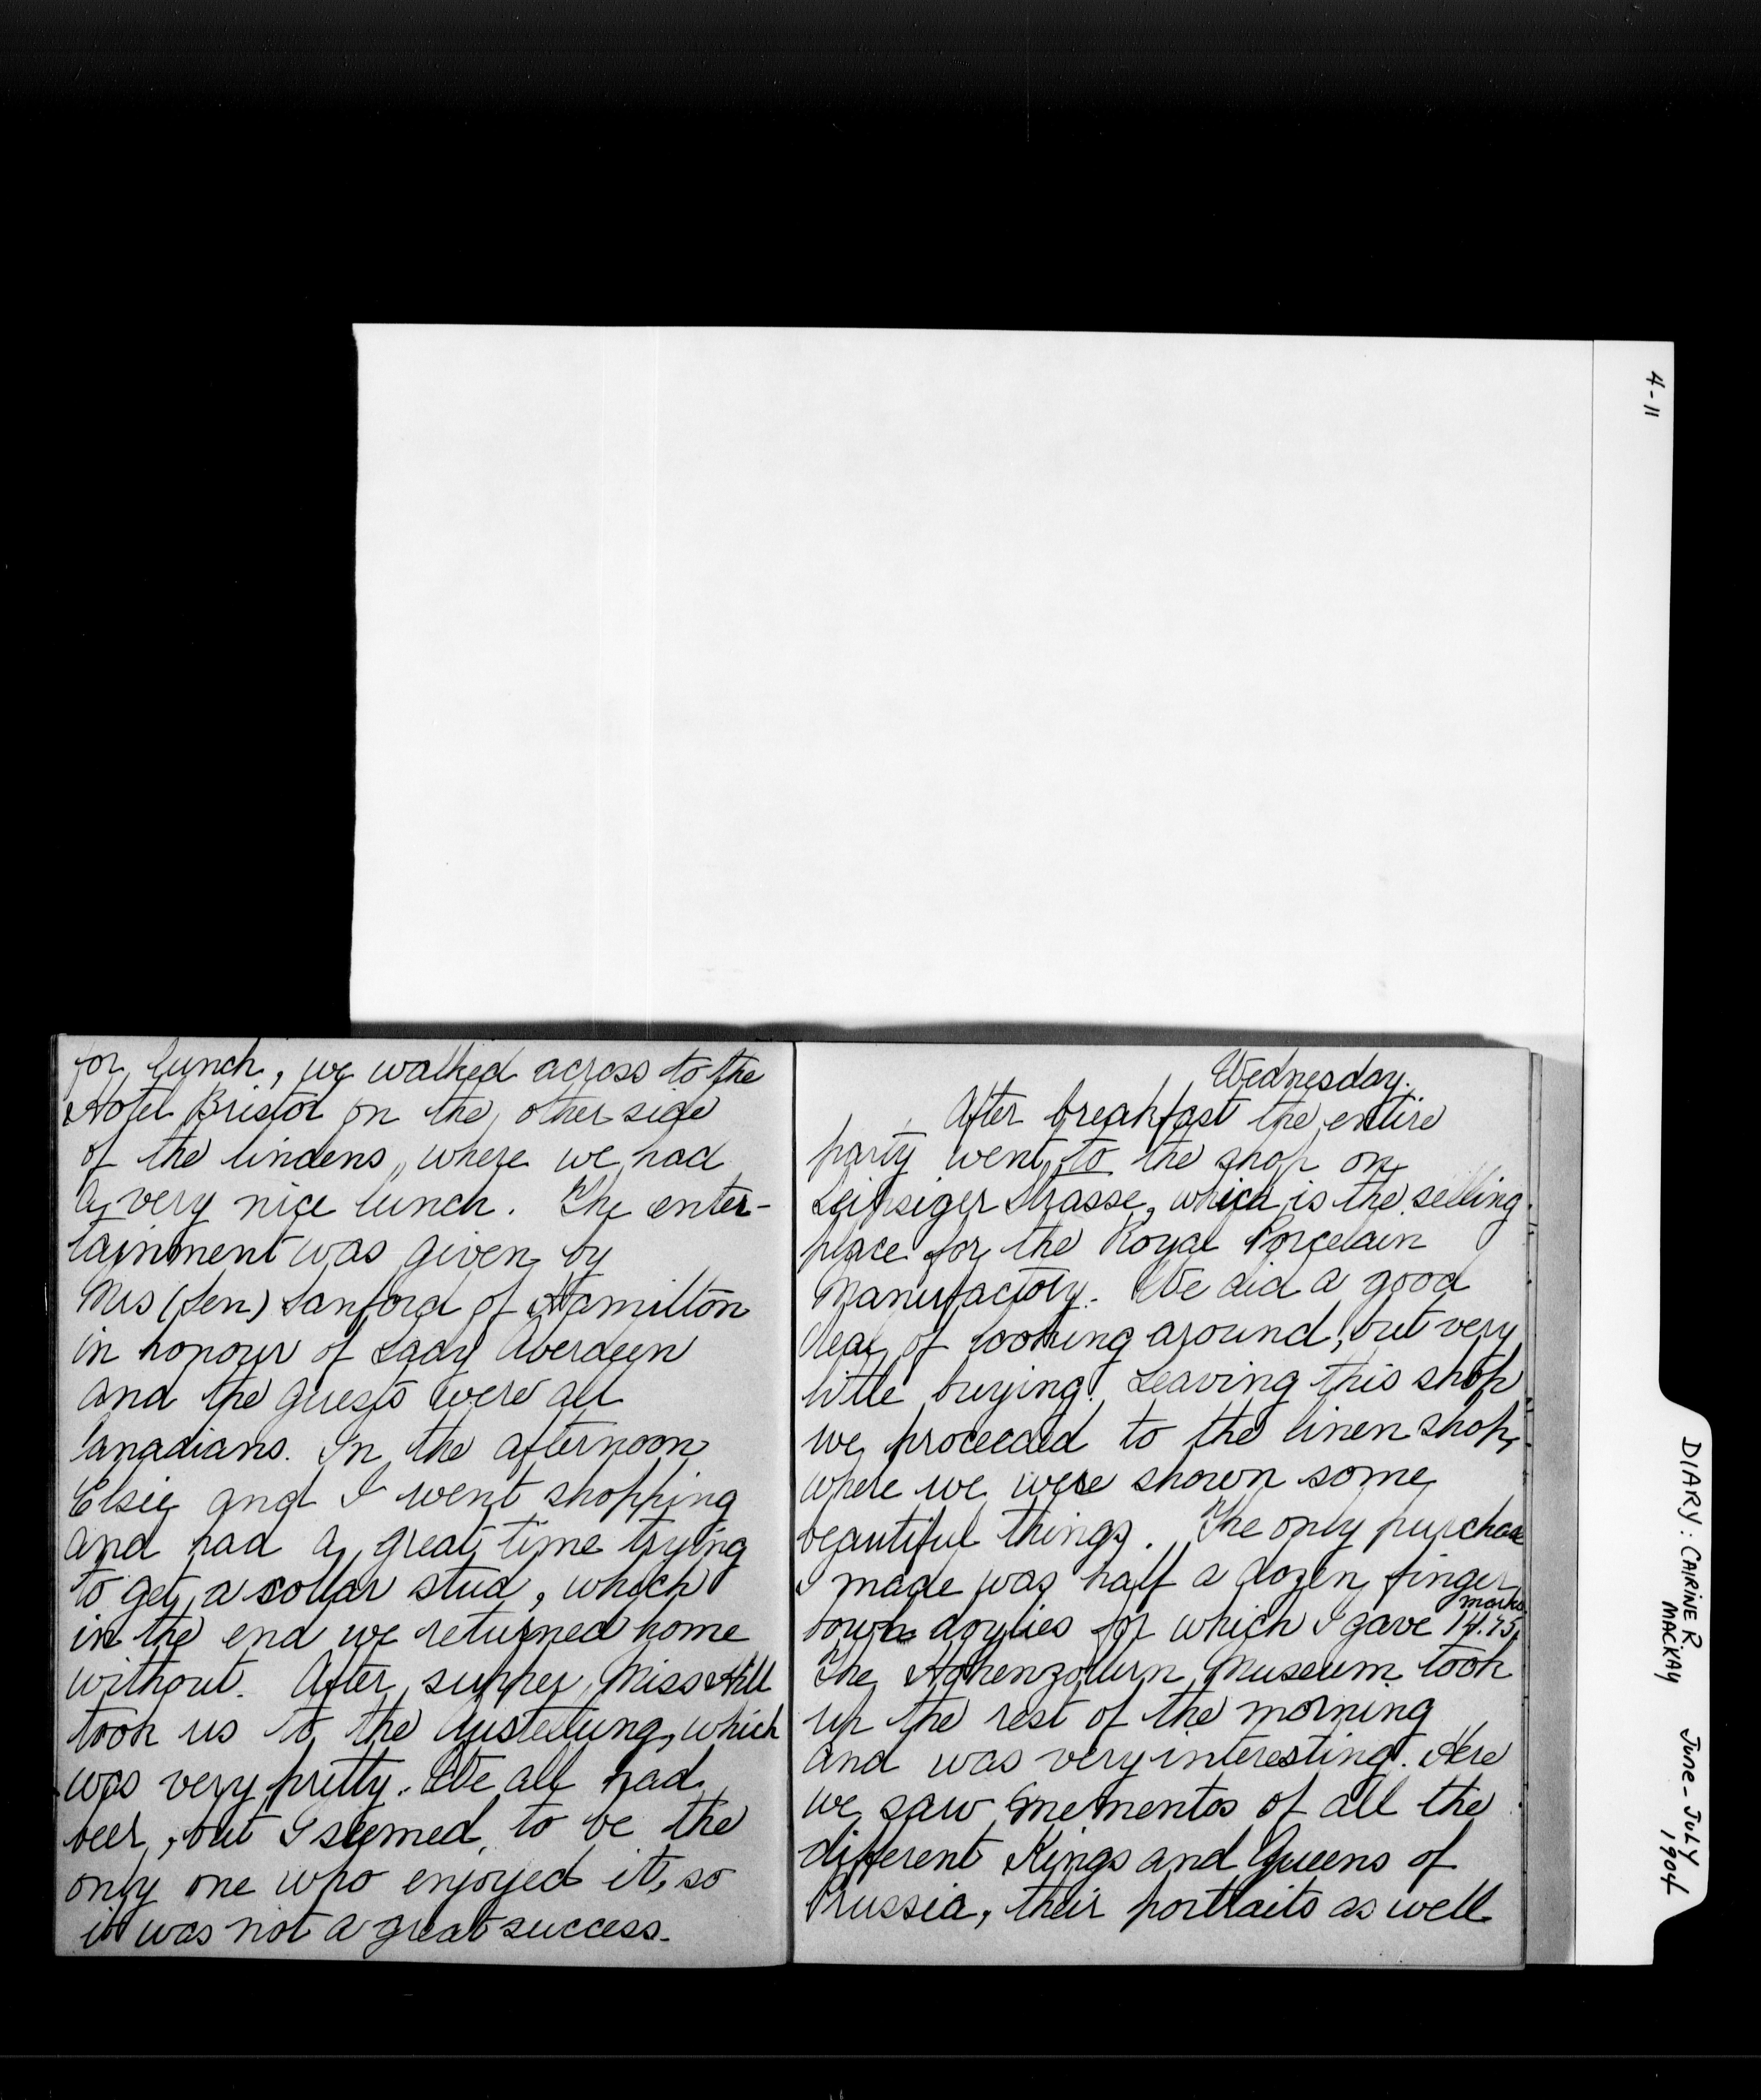 for lunch, we walked across to the
Hotel Bristol on the other side
of the lindens, where we had
a very nice lunch. The enter-
tainment was given by
Mrs (Sen) Sanford of Hamilton
in honour of Lady Aberdeen
and the guests were all
Canadians. In the afternoon
Elsie and I went shopping
and had a great time trying
to get a collar stud, which
in the end we returned home
without. After supper Miss Hill
took us to the Austellung, which
was very pretty. We all had
beer, but I seemed to be the
only one who enjoyed it, so
it was not a great success.
Wednesday.
After breakfast the entire
party went to the shop on
Leipsiger Strasse, which is the selling
place for the Royal Porcelain
Manufactory. We did a good
deal of looking around, but very
little buying. Leaving this shop
we proceeded to the linen shop,
where we were shown some
beautiful things. The only purchase
I made was half a dozen finger
marks
bowl doylies for which I gave 14.75.
The Hohenzollern Museum took
up the rest of the morning
and was very interesting. Here
we saw mementos of all the
different Kings and Queens of
Prussia, their portraits as well
4-11
DIARY: CAIRINE R. MACKAY
June - JULY 1904